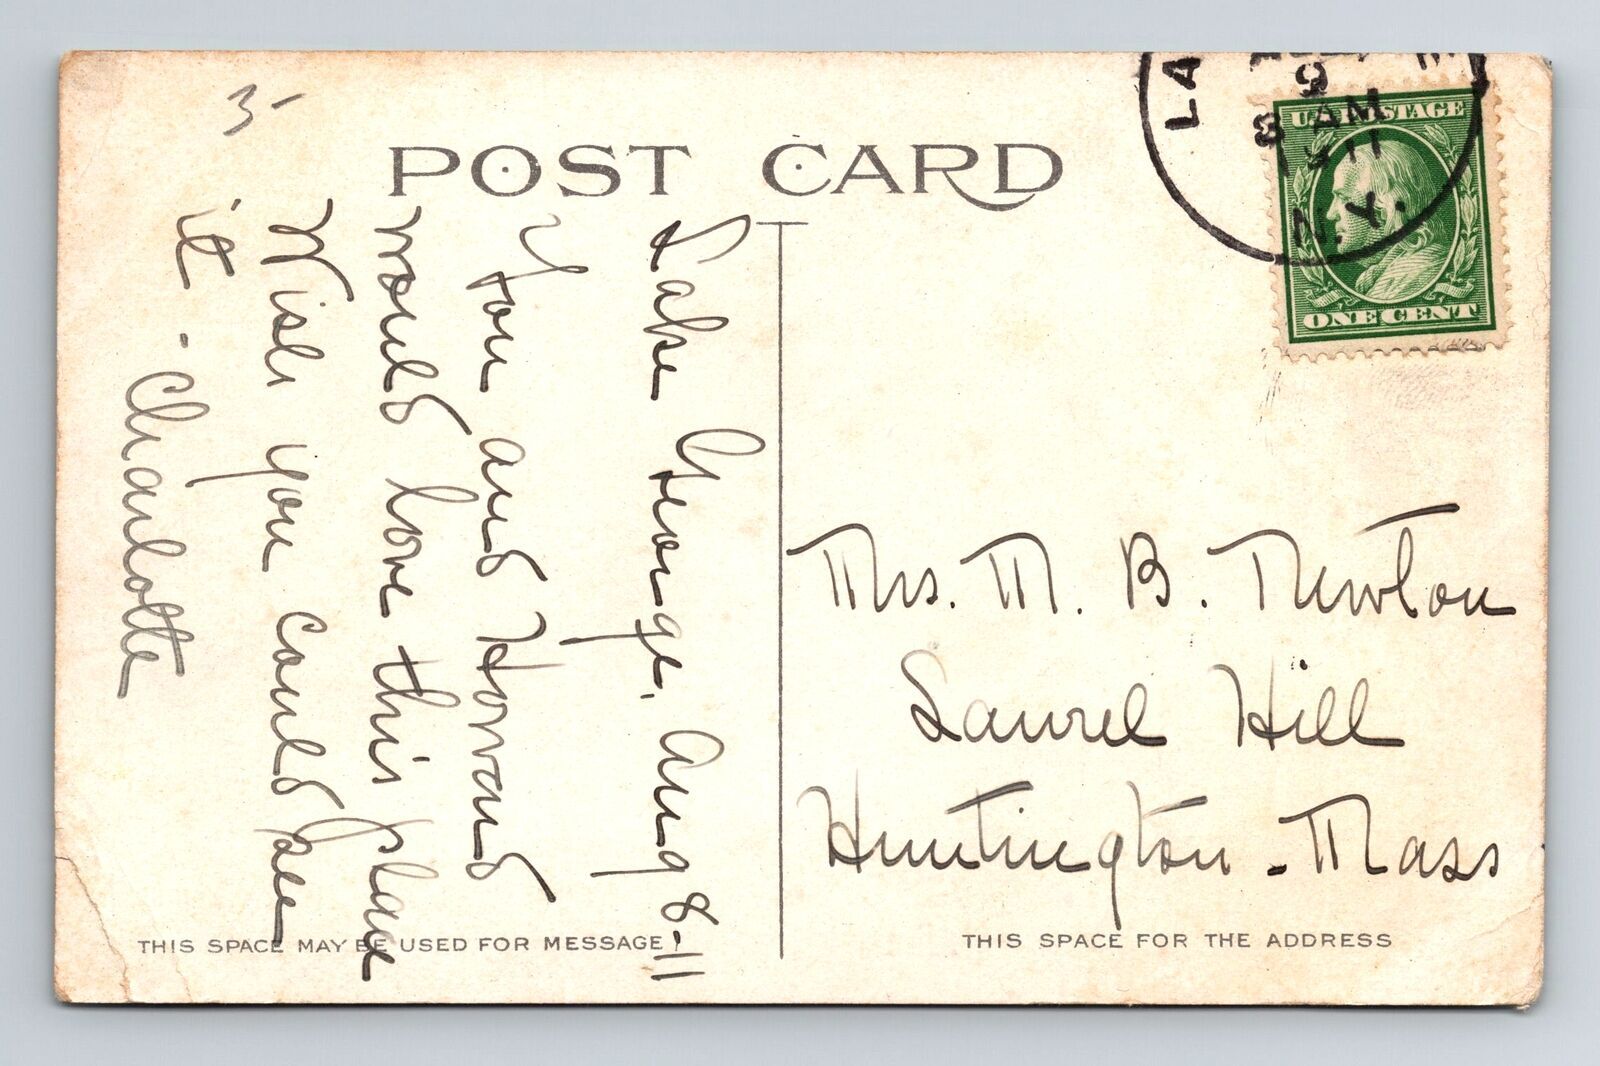 3-
POST CARD
Lake George, Aug 8-11
You and Howard
would love this place
Wish you could see
it - Charlotte
THIS SPACE MAY BE USED FOR MESSAGE
LA
9
8 AM
1911
N.Y.
U.S. POSTAGE
ONE CENT
Mrs. M. B. Newton
Laurel Hill
Huntington - Mass
THIS SPACE FOR THE ADDRESS